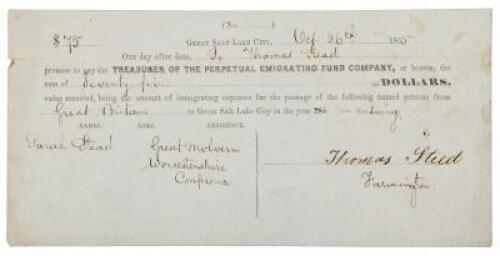 (No. )
$75 GREAT SALT LAKE CITY, Oct 26th 1855
One day after date, I, Thomas Stead
promise to pay the TREASURER OF THE PERPETUAL EMIGRATING FUND COMPANY, or bearer, the
sum of Seventy five DOLLARS,
value received, being the amount of emigrating expenses for the passage of the following named persons from
Great Britain to Great Salt Lake City in the year 185
NAMES. AGES. RESIDENCE.
Sarah Stead Great Malvern
Worcestershire
Conference
Thomas Steed
Farmington.